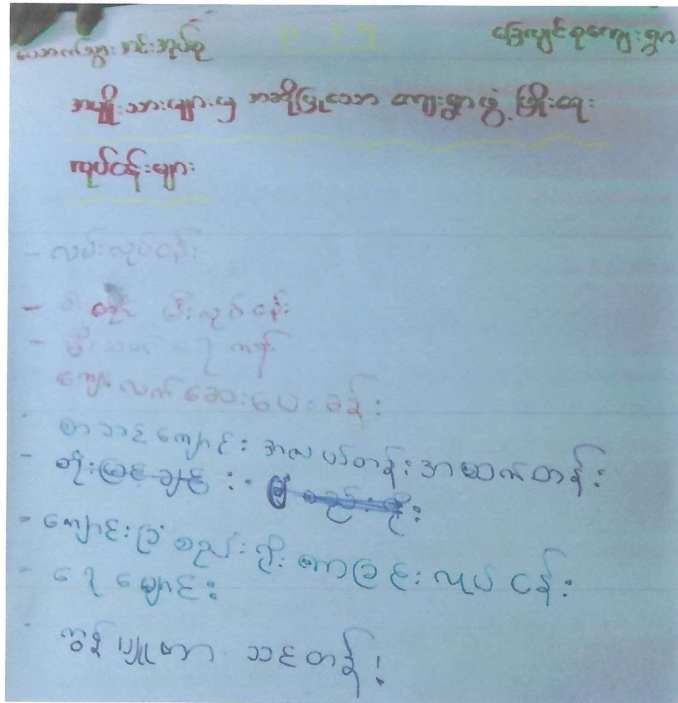 ယောကျ်ား အင်းအုပ်စု ခြေကျင်စုကျေးရွာ
အမျိုးသားများမှ အဆိုပြုသော ကျေးရွာဖွံ့ဖြိုးရေး
လုပ်ငန်းများ
- လမ်းလုပ်ငန်း
- မီးလုပ်ငန်း
- မီးသတ် ရေကန်
ကျေးလက်ဆေးပေးခန်း
- စာသင်ကျောင်း အလယ်တန်း အထက်တန်း
တိုးမြှင့်ချင်း
- ကျောင်းခြံစည်းရိုး ကာခြင်း လုပ်ငန်း
- ရေမြောင်း
ကွန်ပျူတာ သင်တန်း